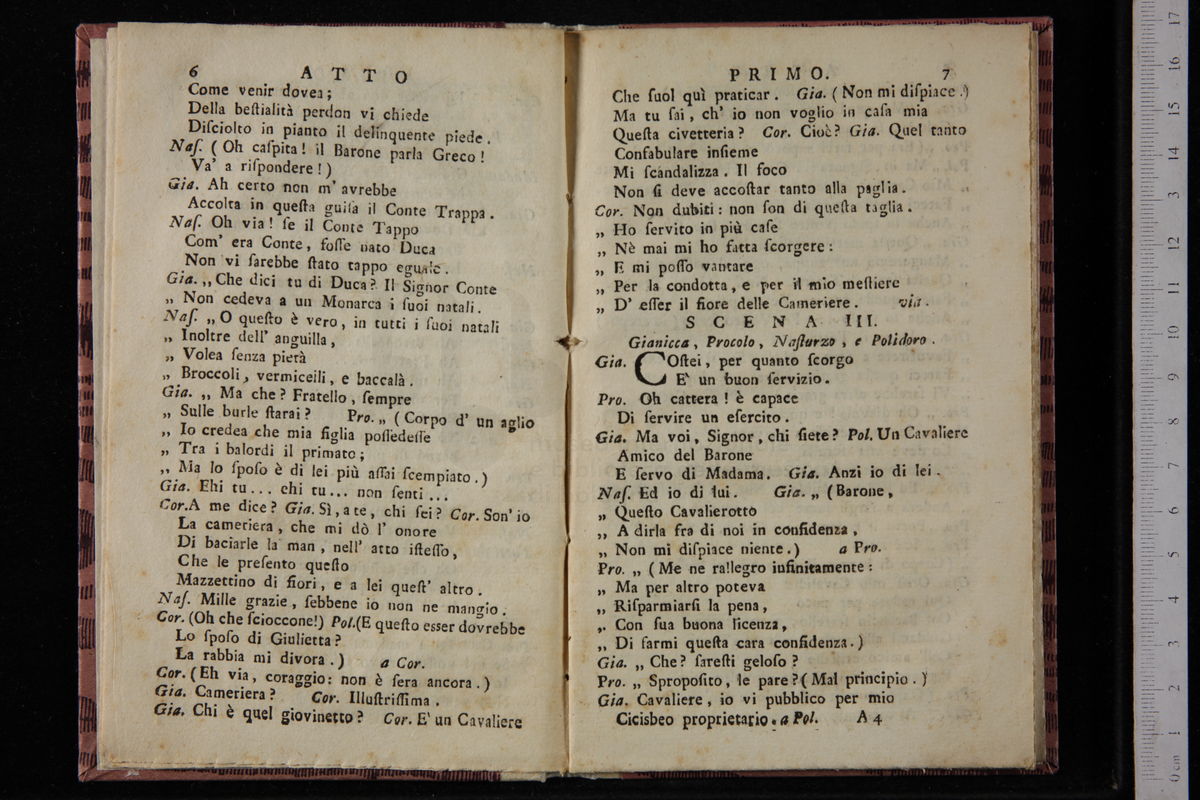 6 ATTO
Come venir dovea;
Della beſtialità perdon vi chiede
Diſciolto in pianto il delinquente piede.
Naſ. (Oh caſpita! il Barone parla Greco!
Va' a riſpondere!)
Gia. Ah certo non m' avrebbe
Accolta in queſta guiſa il Conte Trappa.
Naſ. Oh via! ſe il Conte Tappo
Com' era Conte, foſſe nato Duca
Non vi ſarebbe ſtato tappo eguale.
Gia. „ Che dici tu di Duca? Il Signor Conte
„ Non cedeva a un Monarca i ſuoi natali.
Naſ. „ O queſto è vero, in tutti i ſuoi natali
„ Inoltre dell' anguilla,
„ Volea ſenza pietà
„ Broccoli, vermiceili, e baccalà.
Gia. „ Ma che? Fratello, ſempre
„ Sulle burle ſtarai? Pro. „ (Corpo d' un aglio
„ Io credea che mia figlia poſſedeſſe
„ Tra i balordi il primato;
„ Ma lo ſpoſo è di lei più aſſai ſcempiato.)
Gia. Ehi tu... chi tu... non ſenti...
Cor. A me dice? Gia. Sì, a te, chi ſei? Cor. Son' io
La cameriera, che mi dò l' onore
Di baciarle la man, nell' atto iſteſſo,
Che le preſento queſto
Mazzettino di fiori, e a lei queſt' altro.
Naſ. Mille grazie, ſebbene io non ne mangio.
Cor. (Oh che ſcioccone!) Pol. (E queſto esser dovrebbe
Lo ſpoſo di Giulietta?
La rabbia mi divora.) a Cor.
Cor. (Eh via, coraggio: non è ſera ancora.)
Gia. Cameriera? Cor. Illuſtriſſima.
Gia. Chi è quel giovinetto? Cor. E' un Cavaliere
PRIMO. 7
Che ſuol quì praticar. Gia. (Non mi diſpiace.)
Ma tu ſai, ch' io non voglio in caſa mia
Queſta civetteria? Cor. Cioè? Gia. Quel tanto
Confabulare inſieme
Mi ſcandalizza. Il foco
Non ſi deve accoſtar tanto alla paglia.
Cor. Non dubiti: non ſon di queſta taglia.
„ Ho ſervito in più caſe
„ Nè mai mi ho fatta ſcorgere:
„ E mi poſſo vantare
„ Per la condotta, e per il mio meſtiere
„ D' eſſer il fiore delle Cameriere. via.
SCENA III.
Gianicca, Procolo, Naſturzo, e Polidoro.
Gia. COſtei, per quanto ſcorgo
E' un buon ſervizio.
Pro. Oh cattera! è capace
Di ſervire un eſercito.
Gia. Ma voi, Signor, chi ſiete? Pol. Un Cavaliere
Amico del Barone
E ſervo di Madama. Gia. Anzi io di lei.
Naſ. Ed io di lui. Gia. „ (Barone,
„ Queſto Cavalierotto
„ A dirla fra di noi in confidenza,
„ Non mi diſpiace niente.) a Pro.
Pro. „ (Me ne rallegro infinitamente:
„ Ma per altro poteva
„ Riſparmiarſi la pena,
„ Con ſua buona licenza,
„ Di farmi queſta cara confidenza.)
Gia. „ Che? ſareſti geloſo?
Pro. „ Spropoſito, le pare? (Mal principio.)
Gia. Cavaliere, io vi pubblico per mio
Cicisbeo proprietario. a Pol. A 4
17
16
15
14
13
12
11
10
9
8
7
6
5
4
3
2
1
0 cm